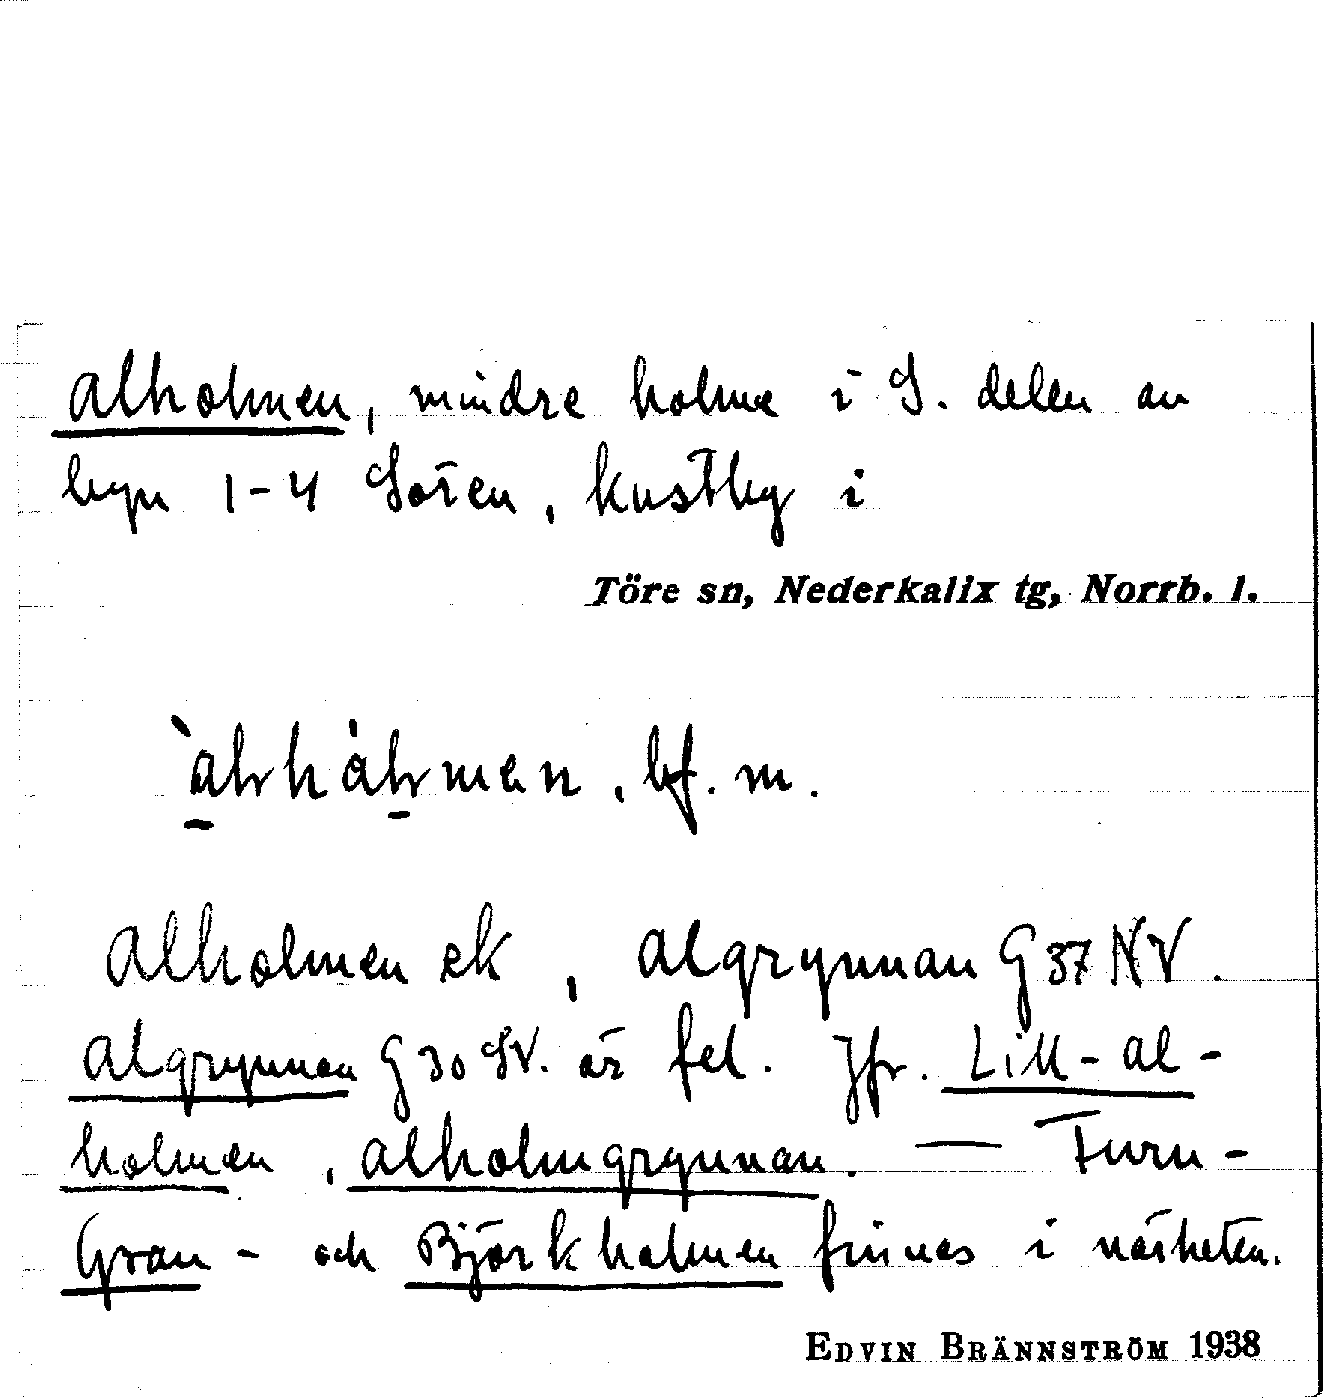 Alholmen, mindre holme i S. delen av
byn 1-4 Sören, kustby i
Töre sn, Nederkalix tg, Norrb. l.
bf. m.
Alholmen ek, Algrynnan G 37 NV.
Algrynnan G 30 SV. är fel. Jfr. Lill-al-
holmen, Alholmgrynnan. — Furu-
Gran- och Björkholmen finnas i närheten.
EDVIN BRÄNNSTRÖM 1938